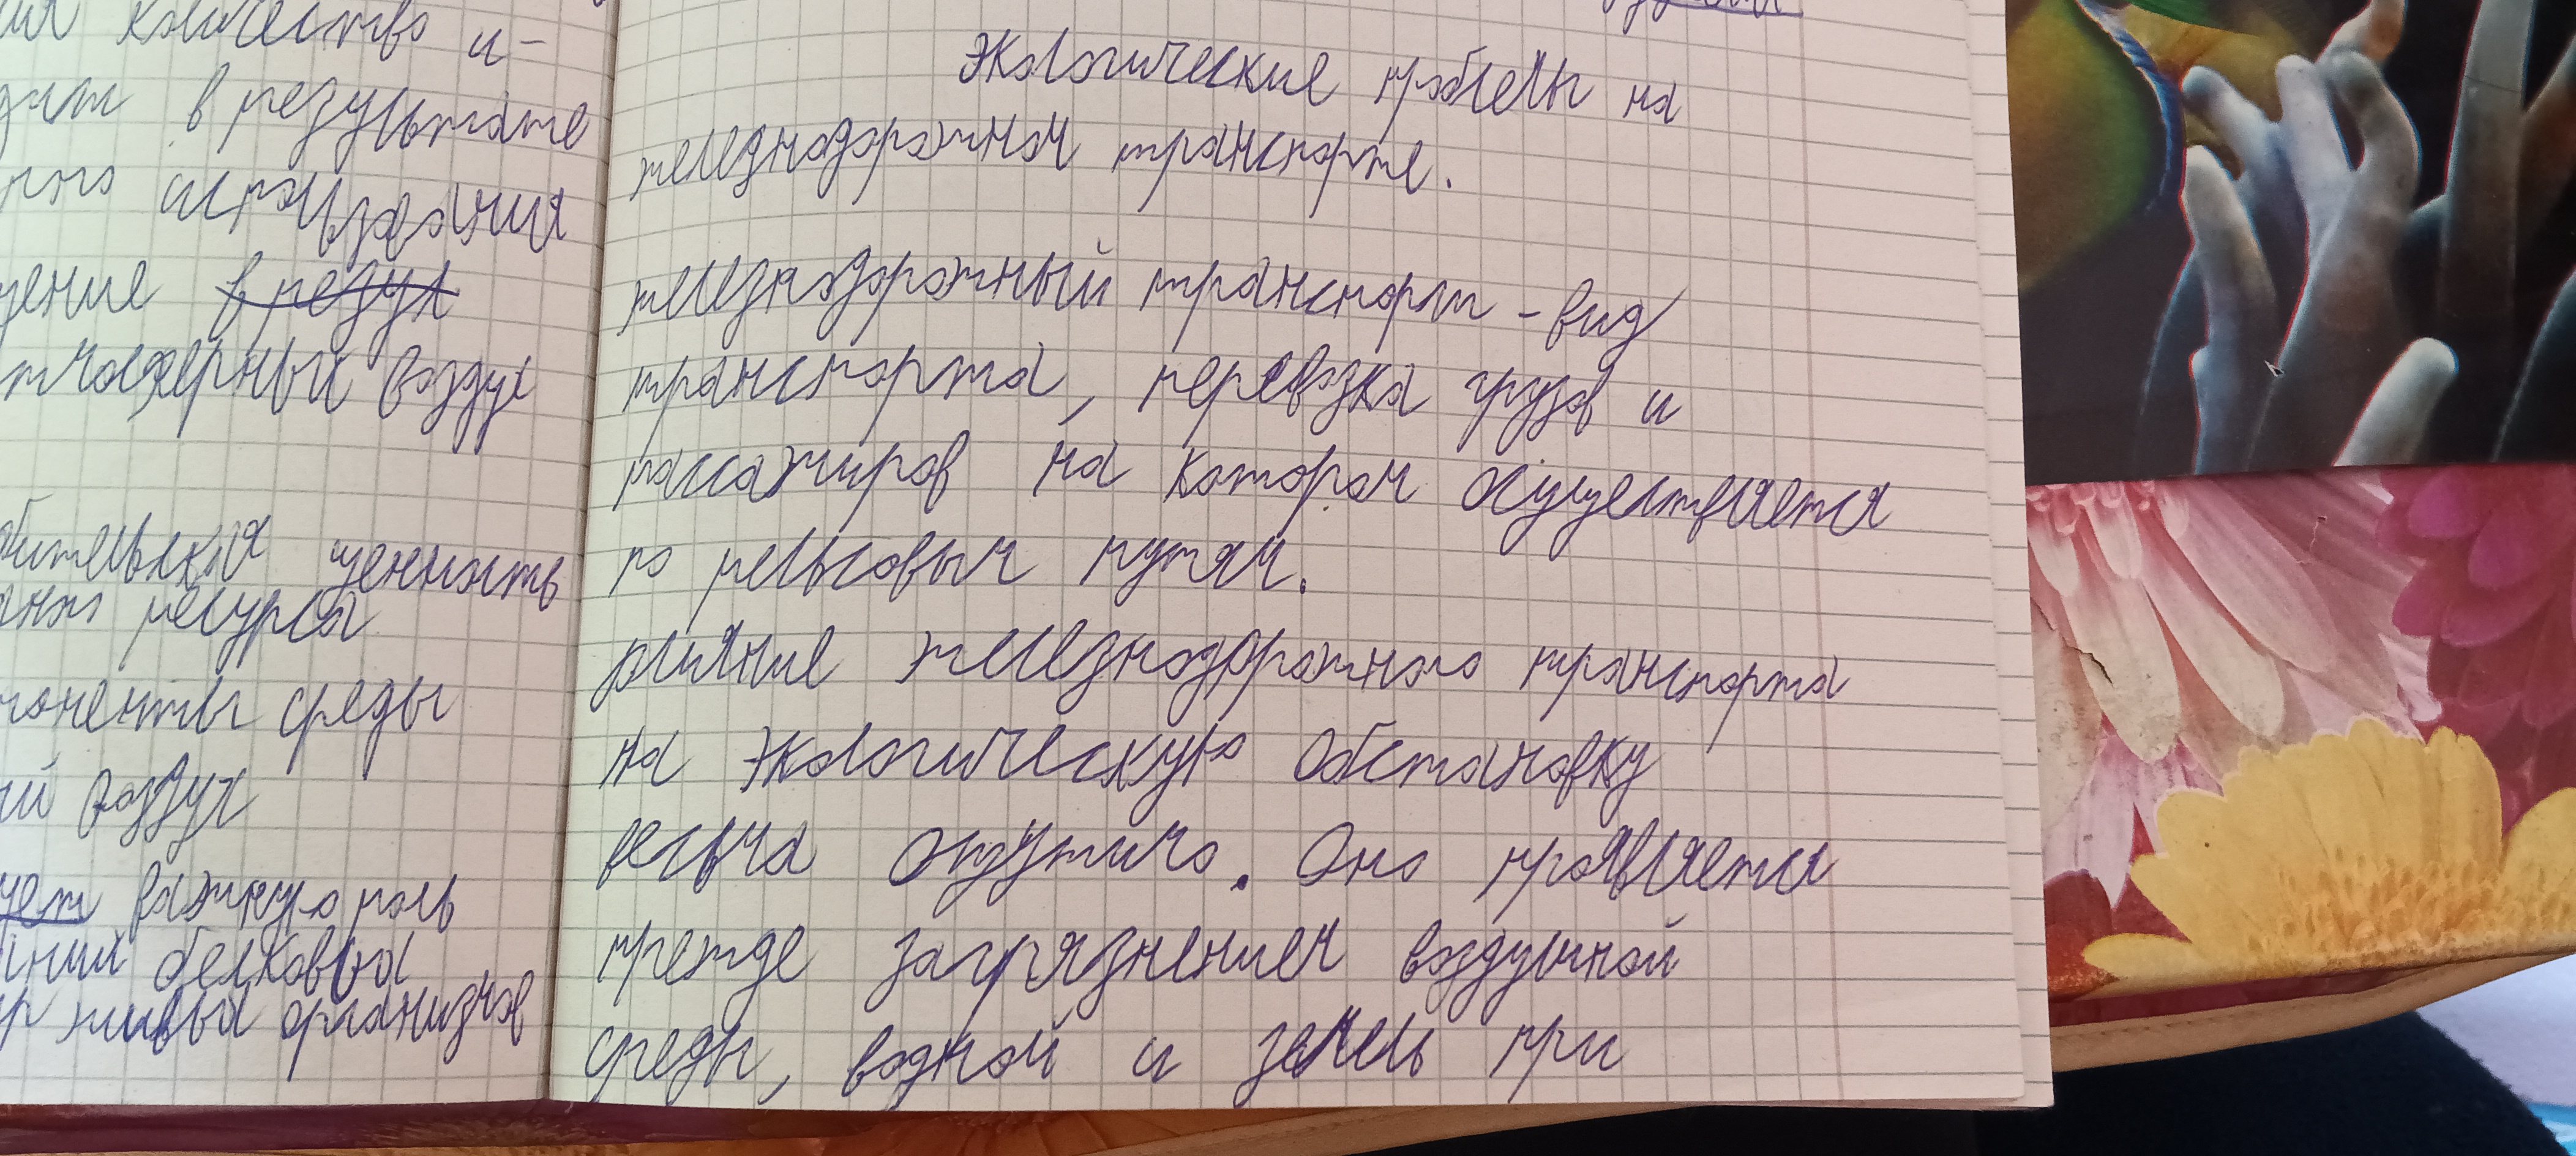 количество и-
в результате
использования
в резул
воздух
ценность
ресурса
среды
воздух
важную роль
белковых
живых организмов
Экологические проблемы на
железнодорожном транспорте.
железнодорожный транспорт - вид
транспорта, перевозка грузов и
пассажиров на котором осуществляется
по рельсовым путям.
влияние железнодорожного транспорта
на экологическую обстановку
весьма ощутимо. Оно проявляется
прежде загрязнением воздушной
среды, водной и земель при